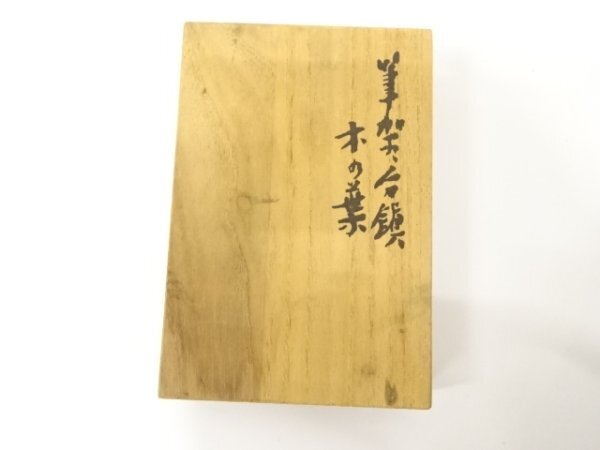 筆架文鎮
木の葉